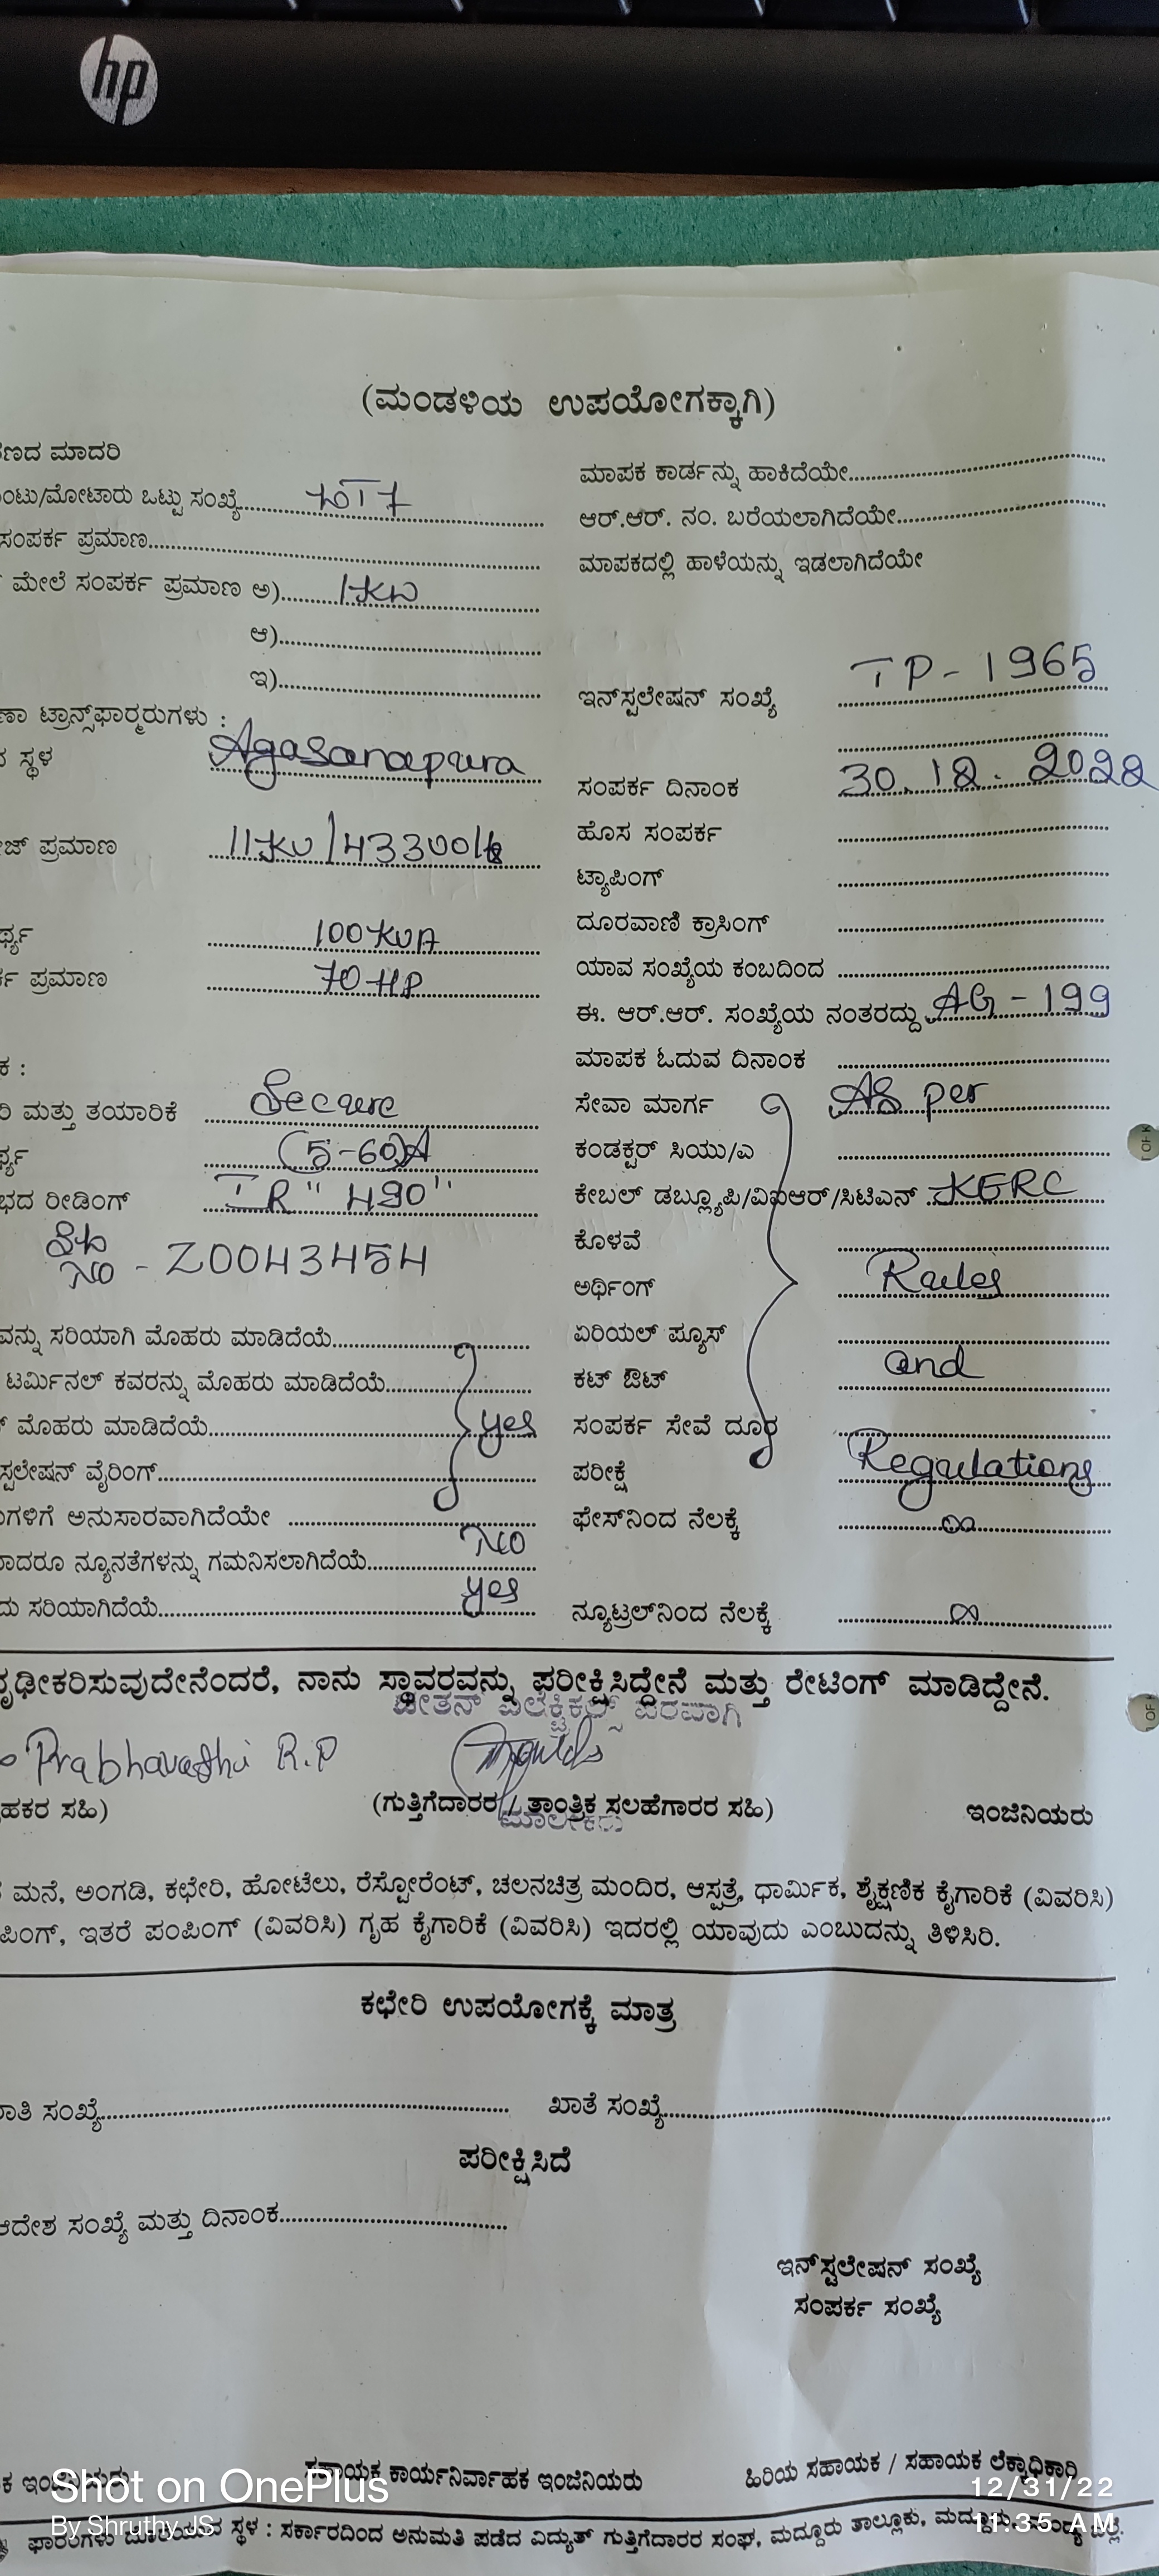 hp
(ಮಂಡಳಿಯ ಉಪಯೋಗಕ್ಕಾಗಿ)
ಣದ ಮಾದರಿ
ಂಟು/ಮೋಟಾರು ಒಟ್ಟು ಸಂಖ್ಯೆ
ಸಂಪರ್ಕ ಪ್ರಮಾಣ
ಮೇಲೆ ಸಂಪರ್ಕ ಪ್ರಮಾಣ ಅ) 1KW
ಆ)
ಇ)
ಣಾ ಟ್ರಾನ್ಸ್‌ಫಾರ್ಮರುಗಳು :
ಸ್ಥಳ Agasanapura
ಜ್ ಪ್ರಮಾಣ 11KV/433Volts
ರ್ಥ್ಯ 100KVA
ಪ್ರಮಾಣ 70HP
ಕ :
ರಿ ಮತ್ತು ತಯಾರಿಕೆ Secure
ರ್ಥ್ಯ (5-60)A
ಭದ ರೀಡಿಂಗ್ IR "490"
No - Z0043454
ವನ್ನು ಸರಿಯಾಗಿ ಮೊಹರು ಮಾಡಿದೆಯೆ
ಟರ್ಮಿನಲ್ ಕವರನ್ನು ಮೊಹರು ಮಾಡಿದೆಯೆ
ಮೊಹರು ಮಾಡಿದೆಯೆ yes
ಸ್ಟಲೇಷನ್ ವೈರಿಂಗ್
ಗಳಿಗೆ ಅನುಸಾರವಾಗಿದೆಯೇ
ಾದರೂ ನ್ಯೂನತೆಗಳನ್ನು ಗಮನಿಸಲಾಗಿದೆಯೆ No
ದು ಸರಿಯಾಗಿದೆಯೆ yes
ಮಾಪಕ ಕಾರ್ಡನ್ನು ಹಾಕಿದೆಯೇ
ಆರ್.ಆರ್. ನಂ. ಬರೆಯಲಾಗಿದೆಯೇ
ಮಾಪಕದಲ್ಲಿ ಹಾಳೆಯನ್ನು ಇಡಲಾಗಿದೆಯೇ
ಇನ್‌ಸ್ಟಲೇಷನ್ ಸಂಖ್ಯೆ TP-1965
ಸಂಪರ್ಕ ದಿನಾಂಕ 30.12.2022
ಹೊಸ ಸಂಪರ್ಕ
ಟ್ಯಾಪಿಂಗ್
ದೂರವಾಣಿ ಕ್ರಾಸಿಂಗ್
ಯಾವ ಸಂಖ್ಯೆಯ ಕಂಬದಿಂದ
ಈ. ಆರ್.ಆರ್. ಸಂಖ್ಯೆಯ ನಂತರದ್ದು AG-199
ಮಾಪಕ ಓದುವ ದಿನಾಂಕ
ಸೇವಾ ಮಾರ್ಗ As per
ಕಂಡಕ್ಟರ್ ಸಿಯು/ಎ
ಕೇಬಲ್ ಡಬ್ಲ್ಯೂಪಿ/ವಿಐಆರ್/ಸಿಟಿಎಸ್ KERC
ಕೊಳವೆ
ಅರ್ಥಿಂಗ್ Rules
ಏರಿಯಲ್ ಪ್ಯೂಸ್
ಕಟ್ ಔಟ್ and
ಸಂಪರ್ಕ ಸೇವೆ ದೂರ
ಪರೀಕ್ಷೆ Regulations
ಫೇಸ್‌ನಿಂದ ನೆಲಕ್ಕೆ ∞
ನ್ಯೂಟ್ರಲ್‌ನಿಂದ ನೆಲಕ್ಕೆ ∞
ೃಢೀಕರಿಸುವುದೇನೆಂದರೆ, ನಾನು ಸ್ಥಾವರವನ್ನು ಪರೀಕ್ಷಿಸಿದ್ದೇನೆ ಮತ್ತು ರೇಟಿಂಗ್ ಮಾಡಿದ್ದೇನೆ.
ಎಲೆಕ್ಟ್ರಿಕಲ್ಸ್ ಪರವಾಗಿ
Prabhavathi R.P
ಹಕರ ಸಹಿ) (ಗುತ್ತಿಗೆದಾರರ / ತಾಂತ್ರಿಕ ಸಲಹೆಗಾರರ ಸಹಿ) ಇಂಜಿನಿಯರು
ಮಾಲೀಕರು
ಮನೆ, ಅಂಗಡಿ, ಕಛೇರಿ, ಹೋಟೆಲು, ರೆಸ್ಟೋರೆಂಟ್, ಚಲನಚಿತ್ರ ಮಂದಿರ, ಆಸ್ಪತ್ರೆ, ಧಾರ್ಮಿಕ, ಶೈಕ್ಷಣಿಕ ಕೈಗಾರಿಕೆ (ವಿವರಿಸಿ)
ಪಿಂಗ್, ಇತರೆ ಪಂಪಿಂಗ್ (ವಿವರಿಸಿ) ಗೃಹ ಕೈಗಾರಿಕೆ (ವಿವರಿಸಿ) ಇದರಲ್ಲಿ ಯಾವುದು ಎಂಬುದನ್ನು ತಿಳಿಸಿರಿ.
ಕಛೇರಿ ಉಪಯೋಗಕ್ಕೆ ಮಾತ್ರ
ಾತಿ ಸಂಖ್ಯೆ ಖಾತೆ ಸಂಖ್ಯೆ
ಪರೀಕ್ಷಿಸಿದೆ
ಆದೇಶ ಸಂಖ್ಯೆ ಮತ್ತು ದಿನಾಂಕ
ಇನ್‌ಸ್ಟಲೇಷನ್ ಸಂಖ್ಯೆ
ಸಂಪರ್ಕ ಸಂಖ್ಯೆ
ಸಹಾಯಕ ಕಾರ್ಯನಿರ್ವಾಹಕ ಇಂಜಿನಿಯರು ಹಿರಿಯ ಸಹಾಯಕ / ಸಹಾಯಕ ಲೆಕ್ಕಾಧಿಕಾರಿ
Shot on OnePlus 12/31/22
By Shruthy JS 11:35 AM
ಫಾರಂಗಳು ದೊರೆಯುವ ಸ್ಥಳ : ಸರ್ಕಾರದಿಂದ ಅನುಮತಿ ಪಡೆದ ವಿದ್ಯುತ್ ಗುತ್ತಿಗೆದಾರರ ಸಂಘ, ಮದ್ದೂರು ತಾಲ್ಲೂಕು, ಮದ್ದೂರು,